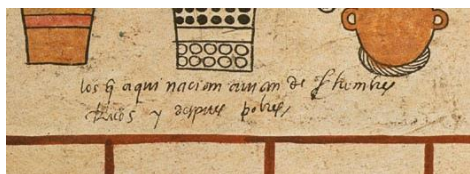 los q̃ aqui nacian auian de ſ hombres
Ricos y despues pobres